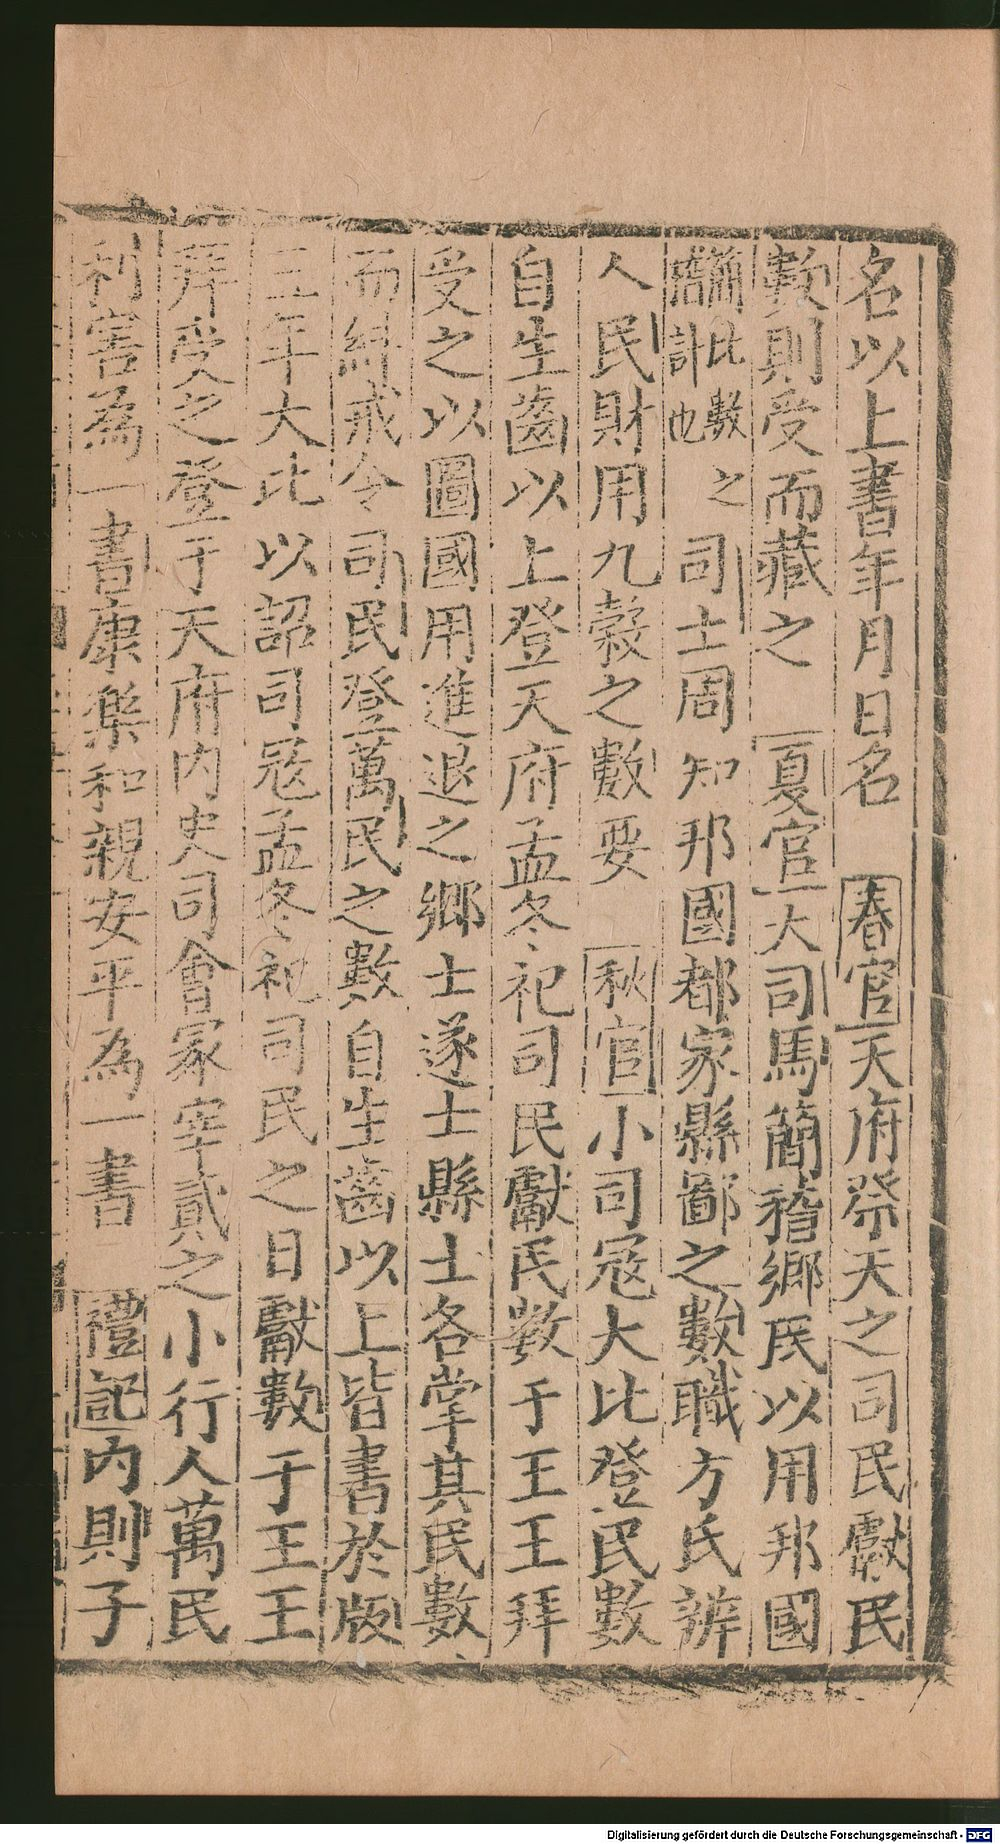 名以上書年月日名　春官天府祭天之司民獻民
數則受而藏之　夏官大司馬簡稽鄉民以用邦國
簡比數之
稽計也　司士周知邦國都家縣鄙之數職方氏辨
人民財用九穀之數要　秋官小司寇大比登民數
自生齒以上登天府孟冬祀司民獻民數于王王拜
受之以圖國用進退之鄉士遂士縣士各掌其民數
而糾戒令司民登萬民之數自生齒以上皆書於版
三年大比以詔司寇孟冬祀司民之日獻數于王王
拜受之登于天府內史司會冢宰貳之小行人萬民
利害為一書康樂和親安平為一書　禮記內則子
Digitalisierung gefördert durch die Deutsche Forschungsgemeinschaft - DFG